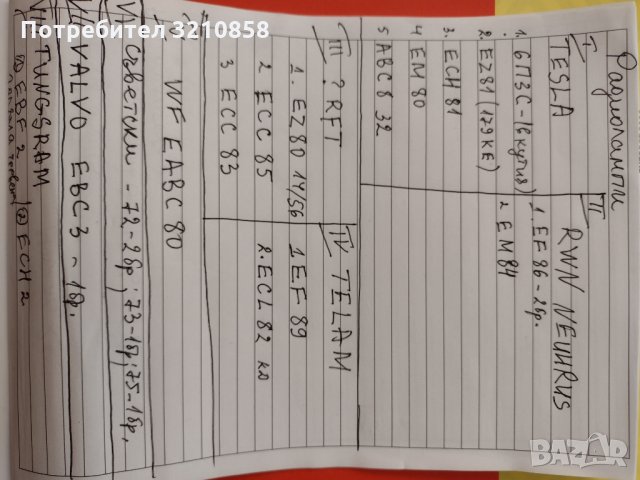 Потребител 3210858
Радиолампи
I TESLA
1. 6П3С - 1бр кутия)
2. EZ81 (179KE)
3. ECH 81
4 EM 80
5 ABC 832
II RWN NEUHRUS
1. EF 86 - 2бр.
2 EM 84
III ? RFT
1. EZ80 14/56
2 ECC 85
3 ECC 83
IV TELAM
1 EF 89
2. ECL 82
WF EABC 80
VI съветски - 72-2бр; 73-1бр; 75-1бр.
VALVO EBC 3 - 1бр.
TUNGSRAM
EBF 2
ECH 2
BAZAR